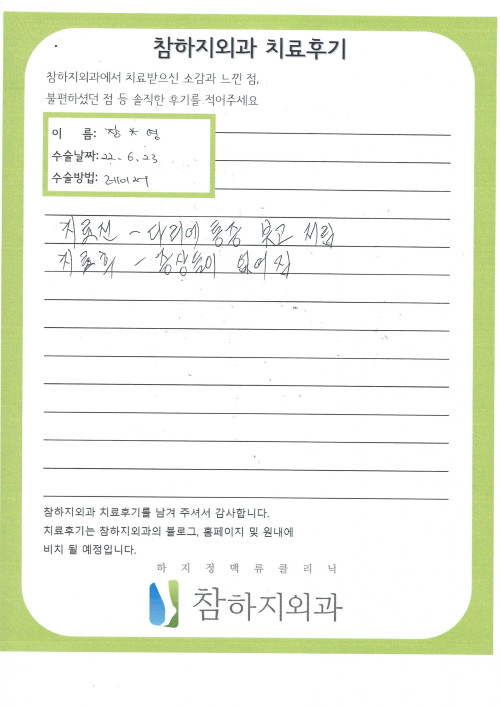 참하지외과 치료후기
참하지외과에서 치료받으신 소감과 느낀 점,
불편하셨던 점 등 솔직한 후기를 적어주세요
이 름: 장*영
수술날짜: 22. 6. 23
수술방법: 레이저
치료전 - 다리에 통증 붓고 저림
치료후 - 증상들이 없어짐
참하지외과 치료후기를 남겨 주셔서 감사합니다.
치료후기는 참하지외과의 블로그, 홈페이지 및 원내에
비치 될 예정입니다.
하지정맥류클리닉
참하지외과